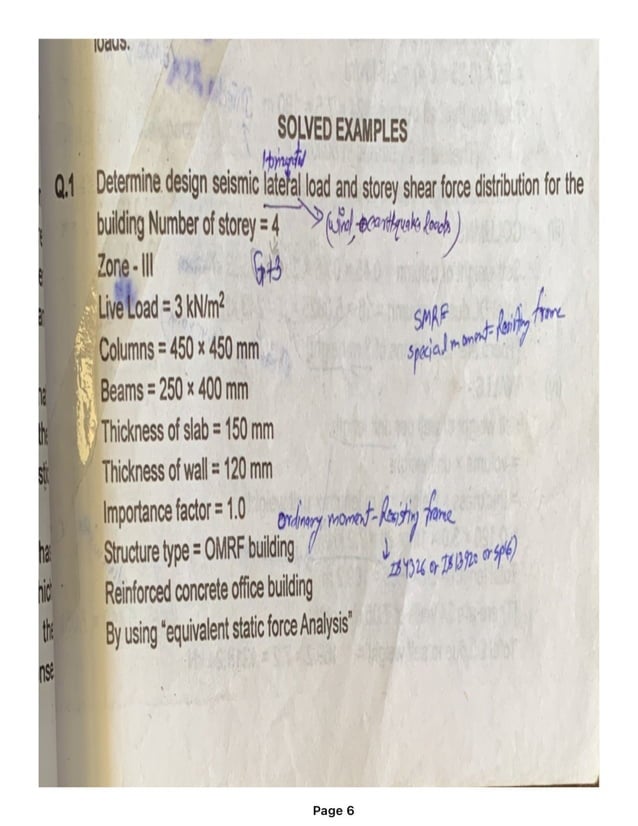 loads.
SOLVED EXAMPLES
Horizontal
Q.1 Determine design seismic lateral load and storey shear force distribution for the
building Number of storey = 4
(wind, earthquake loads)
Zone - III
G+3
Live Load = 3 kN/m²
SMRF
Columns = 450 × 450 mm
special moment-Resisting frame
Beams = 250 × 400 mm
Thickness of slab = 150 mm
Thickness of wall = 120 mm
Importance factor = 1.0
ordinary moment-Resisting frame
Structure type = OMRF building
IS4326 or IS13920 or sp(6)
Reinforced concrete office building
By using "equivalent static force Analysis"
Page 6